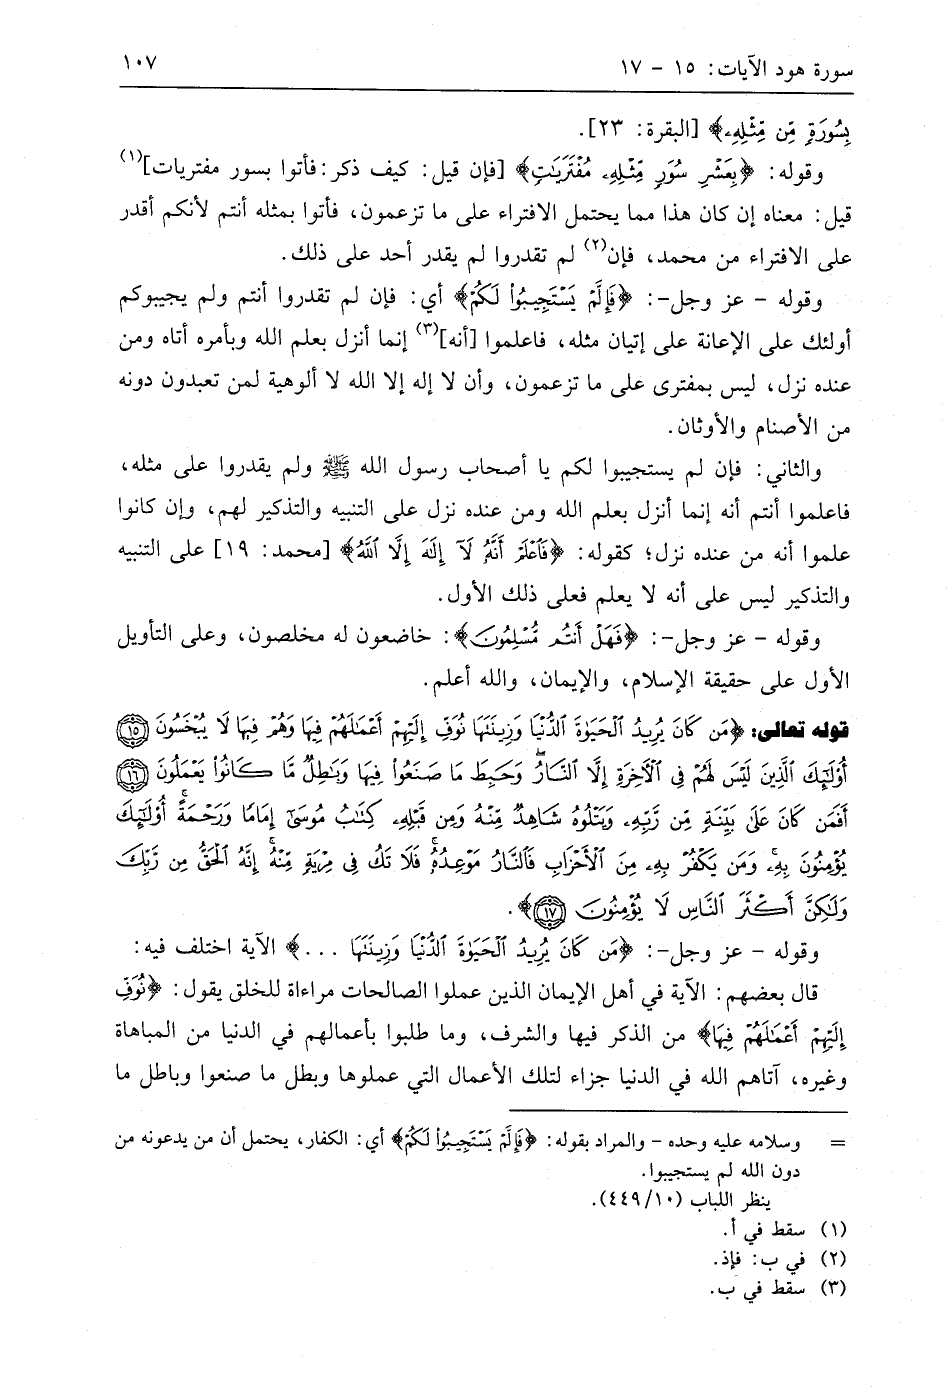 سورة هود الآيات: ١٥ - ١٧
١٠٧
بِسُورَةٍ مِّن مِّثْلِهِۦ﴾ [البقرة: ٢٣].
وقوله: ﴿بِعَشْرِ سُوَرٍ مِّثْلِهِۦ مُفْتَرَيَٰتٍ﴾ [فإن قيل: كيف ذكر: فأتوا بسور مفتريات](١)
قيل: معناه إن كان هذا مما يحتمل الافتراء على ما تزعمون، فأتوا بمثله أنتم لأنكم أقدر
على الافتراء من محمد، فإن(٢) لم تقدروا لم يقدر أحد على ذلك.
وقوله - عز وجل-: ﴿فَإِلَّمْ يَسْتَجِيبُوا۟ لَكُمْ﴾ أي: فإن لم تقدروا أنتم ولم يجيبوكم
أولئك على الإعانة على إتيان مثله، فاعلموا [أنه](٣) إنما أنزل بعلم الله وبأمره أتاه ومن
عنده نزل، ليس بمفترى على ما تزعمون، وأن لا إله إلا الله لا ألوهية لمن تعبدون دونه
من الأصنام والأوثان.
والثاني: فإن لم يستجيبوا لكم يا أصحاب رسول الله ﷺ ولم يقدروا على مثله،
فاعلموا أنتم أنه إنما أنزل بعلم الله ومن عنده نزل على التنبيه والتذكير لهم، وإن كانوا
علموا أنه من عنده نزل؛ كقوله: ﴿فَٱعْلَمْ أَنَّهُۥ لَآ إِلَٰهَ إِلَّا ٱللَّهُ﴾ [محمد: ١٩] على التنبيه
والتذكير ليس على أنه لا يعلم فعلى ذلك الأول.
وقوله - عز وجل-: ﴿فَهَلْ أَنتُم مُّسْلِمُونَ﴾: خاضعون له مخلصون، وعلى التأويل
الأول على حقيقة الإسلام، والإيمان، والله أعلم.
قوله تعالى: ﴿مَن كَانَ يُرِيدُ ٱلْحَيَوٰةَ ٱلدُّنْيَا وَزِينَتَهَا نُوَفِّ إِلَيْهِمْ أَعْمَٰلَهُمْ فِيهَا وَهُمْ فِيهَا لَا يُبْخَسُونَ ﴿١٥﴾
أُو۟لَٰٓئِكَ ٱلَّذِينَ لَيْسَ لَهُمْ فِى ٱلْءَاخِرَةِ إِلَّا ٱلنَّارُ ۖ وَحَبِطَ مَا صَنَعُوا۟ فِيهَا وَبَٰطِلٌ مَّا كَانُوا۟ يَعْمَلُونَ ﴿١٦﴾
أَفَمَن كَانَ عَلَىٰ بَيِّنَةٍ مِّن رَّبِّهِۦ وَيَتْلُوهُ شَاهِدٌ مِّنْهُ وَمِن قَبْلِهِۦ كِتَٰبُ مُوسَىٰٓ إِمَامًا وَرَحْمَةً ۚ أُو۟لَٰٓئِكَ
يُؤْمِنُونَ بِهِۦ ۚ وَمَن يَكْفُرْ بِهِۦ مِنَ ٱلْأَحْزَابِ فَٱلنَّارُ مَوْعِدُهُۥ ۚ فَلَا تَكُ فِى مِرْيَةٍ مِّنْهُ ۚ إِنَّهُ ٱلْحَقُّ مِن رَّبِّكَ
وَلَٰكِنَّ أَكْثَرَ ٱلنَّاسِ لَا يُؤْمِنُونَ ﴿١٧﴾﴾.
وقوله - عز وجل-: ﴿مَن كَانَ يُرِيدُ ٱلْحَيَوٰةَ ٱلدُّنْيَا وَزِينَتَهَا ...﴾ الآية اختلف فيه:
قال بعضهم: الآية في أهل الإيمان الذين عملوا الصالحات مراءاة للخلق يقول: ﴿نُوَفِّ
إِلَيْهِمْ أَعْمَٰلَهُمْ فِيهَا﴾ من الذكر فيها والشرف، وما طلبوا بأعمالهم في الدنيا من المباهاة
وغيره، آتاهم الله في الدنيا جزاء لتلك الأعمال التي عملوها وبطل ما صنعوا وباطل ما
= وسلامه عليه وحده - والمراد بقوله: ﴿فَإِلَّمْ يَسْتَجِيبُوا۟ لَكُمْ﴾ أي: الكفار، يحتمل أن من يدعونه من
دون الله لم يستجيبوا.
ينظر اللباب (٤٤٩/١٠).
(١) سقط في أ.
(٢) في ب: فإذ.
(٣) سقط في ب.